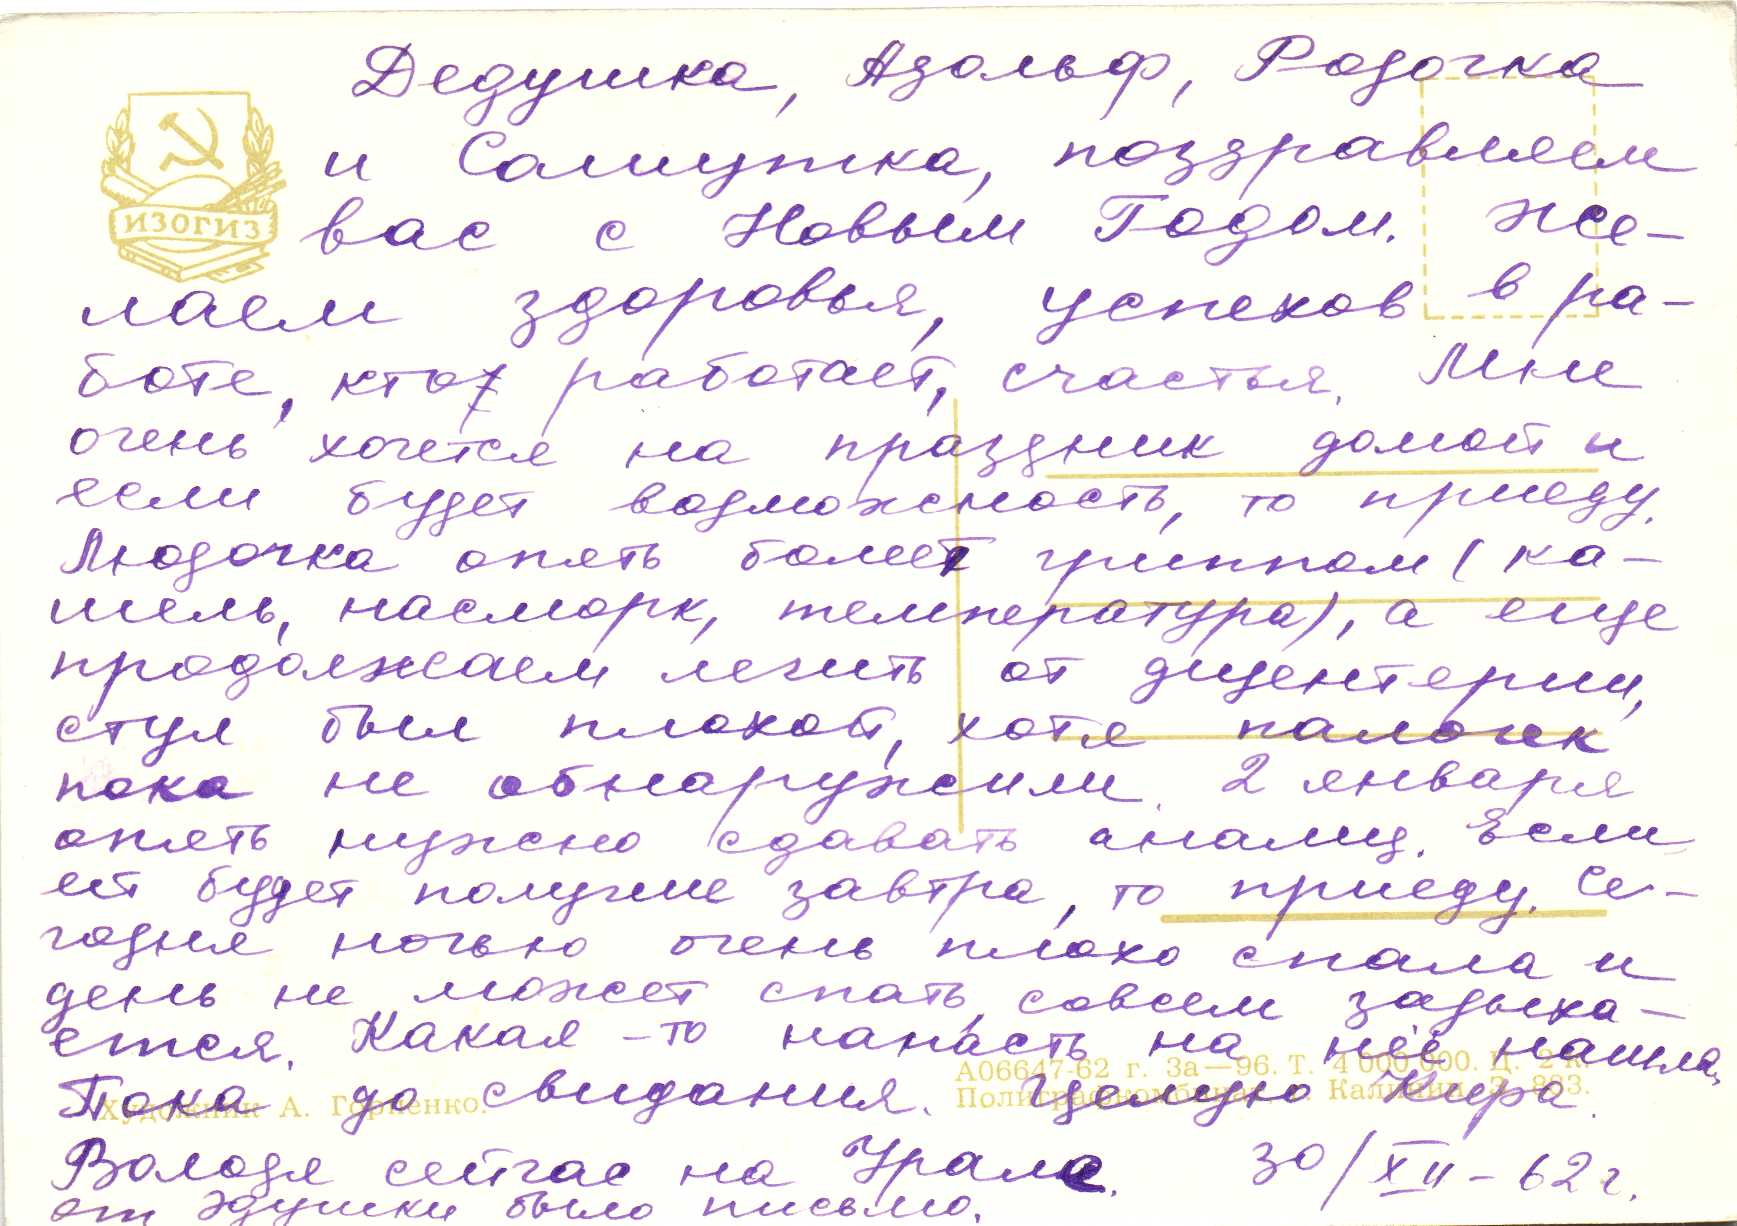 Дедушка, Адольф, Радочка
и Сашутка, поздравляем
ИЗОГИЗ
вас с Новым Годом. Же-
лаем здоровья, успехов в ра-
боте, кто работает, счастья. Мне
очень хочется на праздник домой и
если будет возможность, то приеду.
Людочка опять болеет гриппом (ка-
шель, насморк, температура), а еще
продолжаем лечить от дизентерии,
стул был плохой, хотя палочек
пока не обнаружили. 2 января
опять нужно сдавать анализ. Если
ей будет получше завтра, то приеду. Се-
годня ночью очень плохо спала и
день не может спать, совсем задыха-
ется. Какая-то напасть на неё нашла.
А06647-62 г. За—96. Т. 4 000 000. Ц. 2 к.
Пока до свидания. Целую Кира.
Художник А. Горпенко.
Полиграфкомбинат, г. Калинин, З. 803.
Володя сейчас на Урале. 30/XII-62 г.
от Эдушки было письмо.